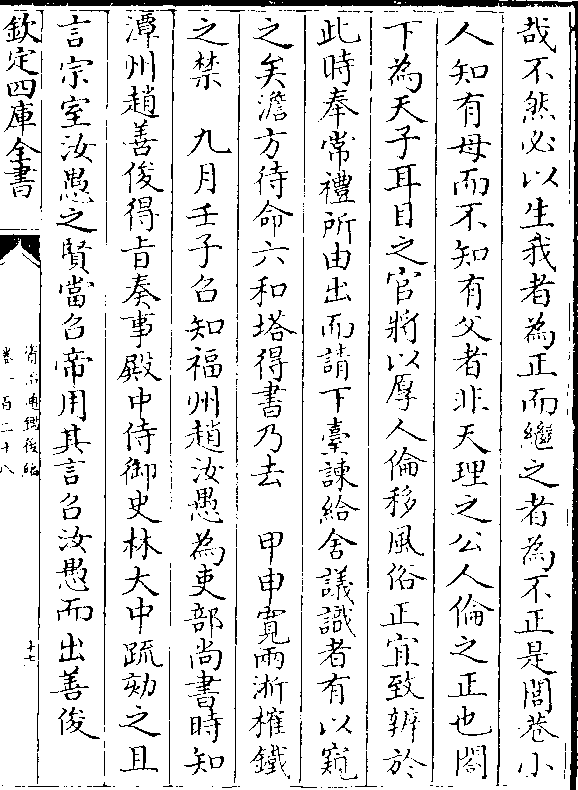 哉不然必以生我者為正而繼之者為不正是閭巷小
人知有母而不知有父者非天理之公人倫之正也閤
下為天子耳目之官將以厚人倫移風俗正宜致辨於
此時奉常禮所由出而請下臺諫給舍議識者有以窺
之矣澹方待命六和塔得書乃去　甲申寛兩淅榷鐵
之禁　九月壬子召知福州趙汝愚為吏部尚書時知
潭州趙善俊得旨奏事殿中侍御史林大中疏劾之且
言宗室汝愚之賢當召帝用其言召汝愚而出善俊
欽定四庫全書
資治通鑑後編
卷一百二十八
十七